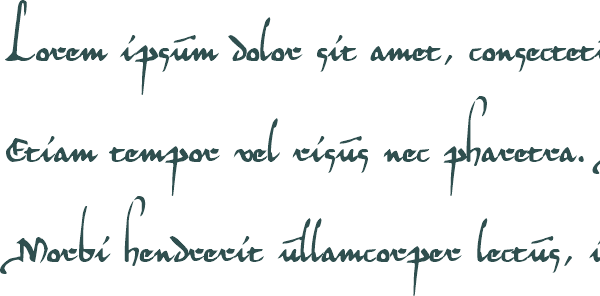 Lorem ipsūm dolor sit amet, consecteti
Etiam tempor vel risūs nec pharetra.
Morbi hendrerit ūllamcorper lectūs, i